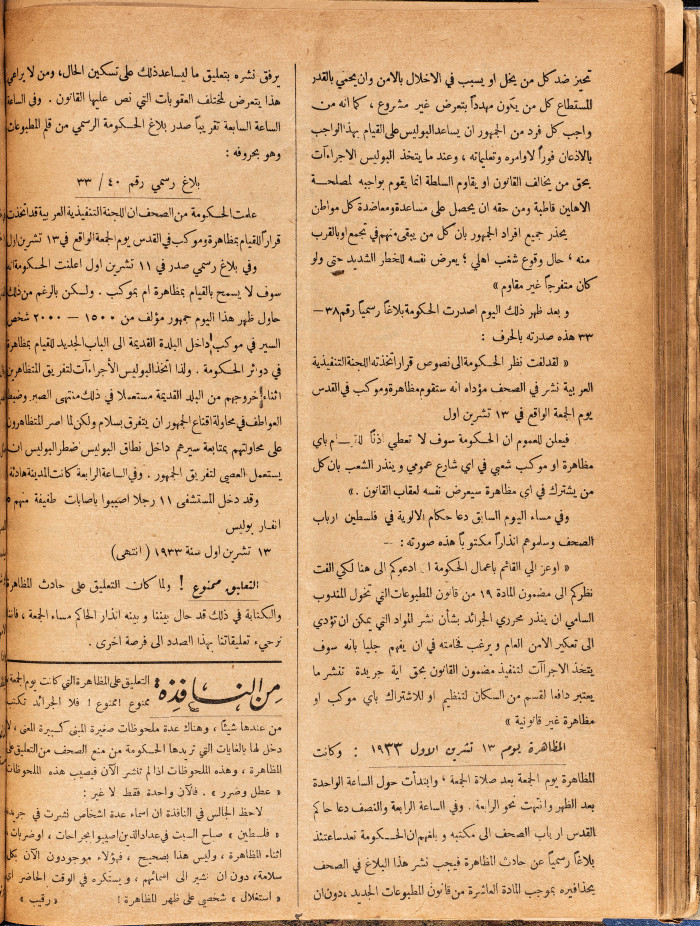 تحيز ضد كل من يخل او يسبب في الاخلال بالامن وان يحمي بالقدر
المستطاع كل من يكون مهدداً بتعرض غير مشروع ، كما انه من
واجب كل فرد من الجمهور ان يساعد البوليس على القيام بهذا الواجب
بالاذعان فوراً لاوامره وتعليماته ، وعند ما يتخذ البوليس الاجراءآت
بحق من يخالف القانون او يقاوم السلطة انما يقوم بواجبه لمصلحة
الاهلين قاطبة ومن حقه ان يحصل على مساعدة ومعاضدة كل مواطن
يحذر جميع افراد الجمهور بان كل من يبقى منهم في تجمع او بالقرب
منه ، حال وقوع شغب اهلي ؛ يعرض نفسه للخطر الشديد حتى ولو
كان متفرجاً غير مقاوم »
و بعد ظهر ذلك اليوم اصدرت الحكومة بلاغاً رسمياً رقم ٣٨ —
٣٣ هذه صدرته بالحرف :
« لقد لفت نظر الحكومة الى نصوص قرار اتخذته اللجنة التنفيذية
العربية نشر في الصحف مؤداه انه ستقوم مظاهرة وموكب في القدس
يوم الجمعة الواقع في ١٣ تشرين اول
فيعلن للعموم ان الحكومة سوف لا تعطي اذناً للقيام باي
مظاهرة او موكب شعبي في اي شارع عمومي و ينذر الشعب بان كل
من يشترك في اي مظاهرة سيعرض نفسه لعقاب القانون . »
وفي مساء اليوم السابق دعا حكام الالوية في فلسطين ارباب
الصحف وسلموهم انذاراً مكتوبا هذه صورته : —
« اوعز الي القائم باعمال الحكومة ان ادعوكم الى هنا لكي الفت
نظركم الى مضمون المادة ١٩ من قانون المطبوعات التي تخول المندوب
السامي ان ينذر محرري الجرائد بشأن نشر المواد التي يمكن ان تؤدي
الى تعكير الامن العام و يرغب فخامته في ان يفهم جليا بانه سوف
يتخذ الاجراآت لتنفيذ مضمون القانون بحق اية جريدة تنشر ما
يعتبر دافعا لقسم من السكان لتنظيم او للاشتراك باي موكب او
مظاهرة غير قانونية »
المظاهرة يوم ١٣ تشرين الاول ١٩٣٣ : وكانت
المظاهرة يوم الجمعة بعد صلاة الجمعة ، وابتدأت حول الساعة الواحدة
بعد الظهر وانتهت نحو الرابعة . وفي الساعة الرابعة والنصف دعا حاكم
القدس ار باب الصحف الى مكتبه و بلغهم ان الحكومة تعد ساعتئذ
بلاغاً رسمياً عن حادث المظاهرة فيجب نشر هذا البلاغ في الصحف
بحذافيره بموجب المادة العاشرة من قانون المطبوعات الجديد ، دون ان
يرفق نشره بتعليق ما ليساعد ذلك على تسكين الحال ، ومن لا يراعي
هذا يتعرض لمختلف العقوبات التي نص عليها القانون . وفى الساعة
الساعة السابعة تقريباً صدر بلاغ الحكومة الرسمي من قلم المطبوعات
وهو بحروفه :
بلاغ رسمي رقم ٤٠ / ٣٣
علمت الحكومة من الصحف ان اللجنة التنفيذية العربية قد اتخذت
قراراً للقيام بمظاهرة وموكب في القدس يوم الجمعة الواقع في ١٣ تشرين اول
وفي بلاغ رسمي صدر في ١١ تشرين اول اعلنت الحكومة انه
سوف لا يسمح بالقيام بمظاهرة ام بموكب . ولكن بالرغم من ذلك
حاول ظهر هذا اليوم جمهور مؤلف من ١٥٠٠ — ٢٠٠٠ شخص
السير في موكب داخل البلدة القديمة الى الباب الجديد للقيام بمظاهرة
في دوائر الحكومة . ولذا اتخذ البوليس الأجراءآت لتفريق المتظاهرين
اثناء خروجهم من البلد القديمة مستعملا في ذلك منتهى الصبر وضبط
العواطف في محاولة اقناع الجمهور ان يتفرق بسلام ولكن لما اصر المتظاهرون
على محاولتهم بمتابعة سيرهم داخل نطاق البوليس اضطر البوليس ان
يستعمل العصي لتفريق الجمهور . وفي الساعة الرابعة كانت المدينة هادئة
وقد دخل المستشفى ١١ رجلا اصيبوا باصابات طفيفة منهم ٥
انفار بوليس
١٣ تشرين اول سنة ١٩٣٣ ( انتهى )
التعليق ممنوع ! ولما كان التعليق على حادث المظاهرة
والكتابة في ذلك قد حال بيننا و بينه انذار الحاكم مساء الجمعة ، فاننا
نرجىء تعليقاتنا بهذا الصدد الى فرصة اخرى .
من النافذة :
التعليق على المظاهرة التي كانت يوم الجمعة
ممنوع ! ممنوع ! فلا الجرائد تكتب
من عندها شيئاً ، وهناك عدة ملحوظات صغيرة المبنى كبيرة المعنى ، لا
دخل لها بالغايات التي تريدها الحكومة من منع الصحف من التعليق على
المظاهرة ، وهذه الملحوظات اذا لم تناشر الآن فيصيب هذه الملحوظات
« عطل وضرر » . فالآن واحدة فقط لا غير :
لاحظ الجالس في النافذة ان اسماء عدة اشخاص نشرت في جريدة
« فلسطين » صباح السبت في عداد الذين اصيبوا بجراحات ، او ضربات ،
اثناء المظاهرة ، وليس هذا بصحيح ، فهؤلاء موجودون الآن بكل
سلامة ، دون ان نشير الى اسمائهم ، و يستكره في الوقت الحاضر اي
« استغلال » شخصي على ظهر المظاهرة ! « رقيب »
٢